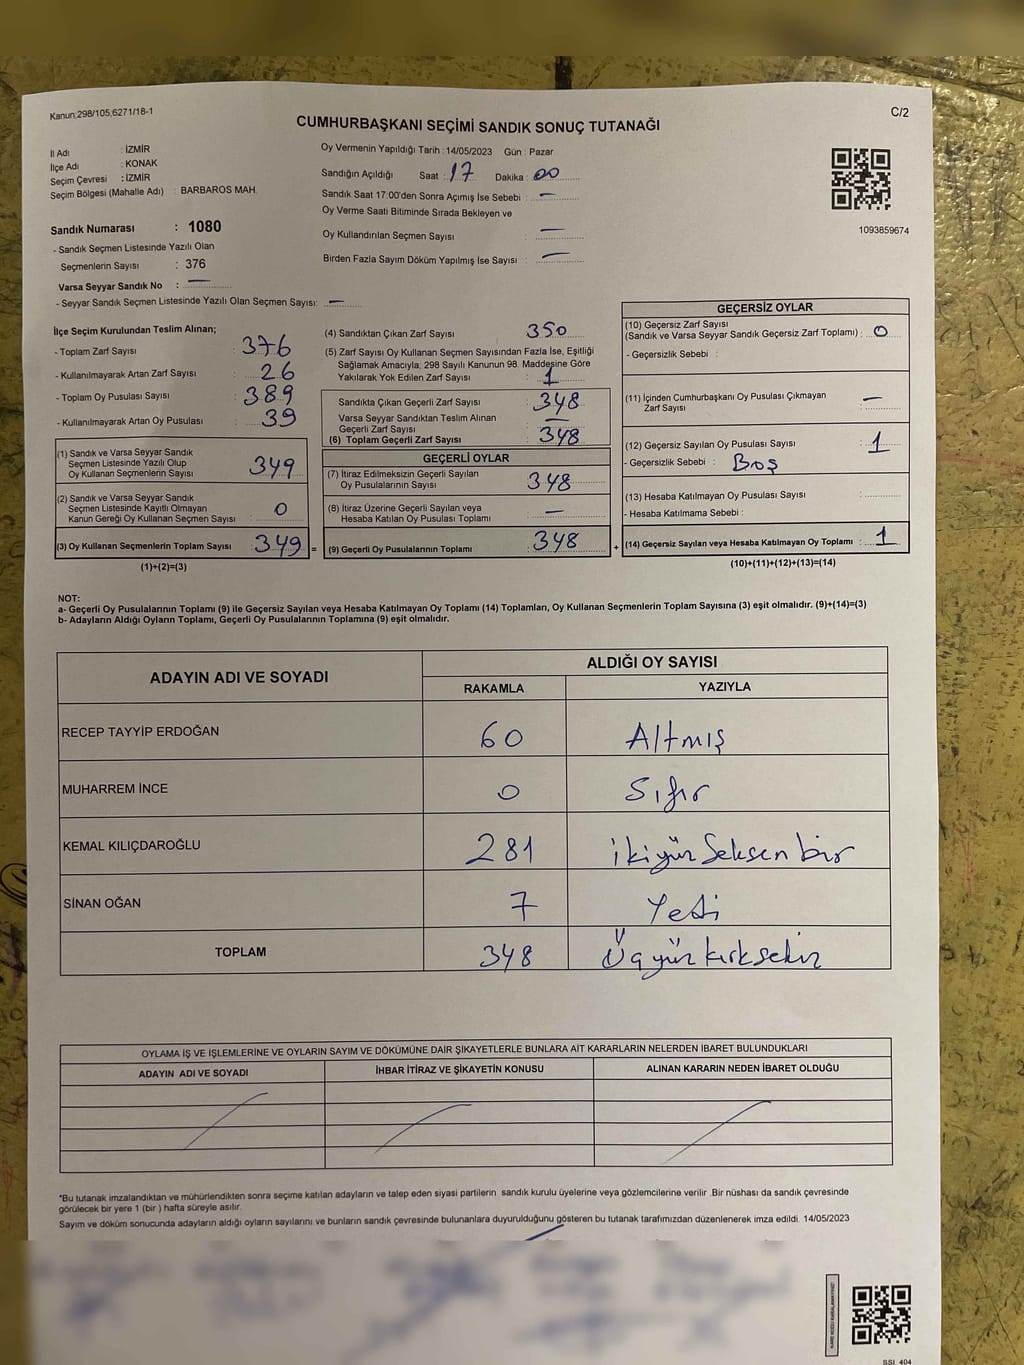 Kanun;298/105,6271/18-1
C/2
CUMHURBAŞKANI SEÇİMİ SANDIK SONUÇ TUTANAĞI
İl Adı : İZMİR
İlçe Adı : KONAK
Seçim Çevresi : İZMİR
Seçim Bölgesi (Mahalle Adı) : BARBAROS MAH.
Oy Vermenin Yapıldığı Tarih : 14/05/2023 Gün : Pazar
Sandığın Açıldığı Saat : 17 Dakika : 00
Sandık Saat 17:00'den Sonra Açımış İse Sebebi : —
Oy Verme Saati Bitiminde Sırada Bekleyen ve
Oy Kullandırılan Seçmen Sayısı : —
Birden Fazla Sayım Döküm Yapılmış İse Sayısı : —
1093859674
Sandık Numarası : 1080
- Sandık Seçmen Listesinde Yazılı Olan
Seçmenlerin Sayısı : 376
Varsa Seyyar Sandık No : —
- Seyyar Sandık Seçmen Listesinde Yazılı Olan Seçmen Sayısı: —
İlçe Seçim Kurulundan Teslim Alınan;
- Toplam Zarf Sayısı : 376
- Kullanılmayarak Artan Zarf Sayısı : 26
- Toplam Oy Pusulası Sayısı : 389
- Kullanılmayarak Artan Oy Pusulası : 39
(1) Sandık ve Varsa Seyyar Sandık
Seçmen Listesinde Yazılı Olup
Oy Kullanan Seçmenlerin Sayısı : 349
(2) Sandık ve Varsa Seyyar Sandık
Seçmen Listesinde Kayıtlı Olmayan
Kanun Gereği Oy Kullanan Seçmen Sayısı : 0
(3) Oy Kullanan Seçmenlerin Toplam Sayısı : 349 =
(1)+(2)=(3)
(4) Sandıktan Çıkan Zarf Sayısı : 350
(5) Zarf Sayısı Oy Kullanan Seçmen Sayısından Fazla İse, Eşitliği
Sağlamak Amacıyla; 298 Sayılı Kanunun 98. Maddesine Göre
Yakılarak Yok Edilen Zarf Sayısı : 1
Sandıkta Çıkan Geçerli Zarf Sayısı : 348
Varsa Seyyar Sandıktan Teslim Alınan
Geçerli Zarf Sayısı : —
(6) Toplam Geçerli Zarf Sayısı : 348
GEÇERLİ OYLAR
(7) İtiraz Edilmeksizin Geçerli Sayılan
Oy Pusulalarının Sayısı : 348
(8) İtiraz Üzerine Geçerli Sayılan veya
Hesaba Katılan Oy Pusulası Toplamı : —
(9) Geçerli Oy Pusulalarının Toplamı : 348 +
GEÇERSİZ OYLAR
(10) Geçersiz Zarf Sayısı
(Sandık ve Varsa Seyyar Sandık Geçersiz Zarf Toplamı) : 0
- Geçersizlik Sebebi :
(11) İçinden Cumhurbaşkanı Oy Pusulası Çıkmayan
Zarf Sayısı : —
(12) Geçersiz Sayılan Oy Pusulası Sayısı : 1
- Geçersizlik Sebebi : Boş
(13) Hesaba Katılmayan Oy Pusulası Sayısı :
- Hesaba Katılmama Sebebi :
(14) Geçersiz Sayılan veya Hesaba Katılmayan Oy Toplamı : 1
(10)+(11)+(12)+(13)=(14)
NOT:
a- Geçerli Oy Pusulalarının Toplamı (9) ile Geçersiz Sayılan veya Hesaba Katılmayan Oy Toplamı (14) Toplamları, Oy Kullanan Seçmenlerin Toplam Sayısına (3) eşit olmalıdır. (9)+(14)=(3)
b- Adayların Aldığı Oyların Toplamı, Geçerli Oy Pusulalarının Toplamına (9) eşit olmalıdır.
ADAYIN ADI VE SOYADI
ALDIĞI OY SAYISI
RAKAMLA YAZIYLA
RECEP TAYYİP ERDOĞAN 60 Altmış
MUHARREM İNCE 0 Sıfır
KEMAL KILIÇDAROĞLU 281 ikiyüz Seksen bir
SİNAN OĞAN 7 Yedi
TOPLAM 348 Üçyüz kırksekiz
OYLAMA İŞ VE İŞLEMLERİNE VE OYLARIN SAYIM VE DÖKÜMÜNE DAİR ŞİKAYETLERLE BUNLARA AİT KARARLARIN NELERDEN İBARET BULUNDUKLARI
ADAYIN ADI VE SOYADI İHBAR İTİRAZ VE ŞİKAYETİN KONUSU ALINAN KARARIN NEDEN İBARET OLDUĞU
*Bu tutanak imzalandıktan ve mühürlendikten sonra seçime katılan adayların ve talep eden siyasi partilerin sandık kurulu üyelerine veya gözlemcilerine verilir. Bir nüshası da sandık çevresinde
görülecek bir yere 1 (bir ) hafta süreyle asılır.
Sayım ve döküm sonucunda adayların aldığı oyların sayılarını ve bunların sandık çevresinde bulunanlara duyurulduğunu gösteren bu tutanak tarafımızdan düzenlenerek imza edildi. 14/05/2023
SSI 404